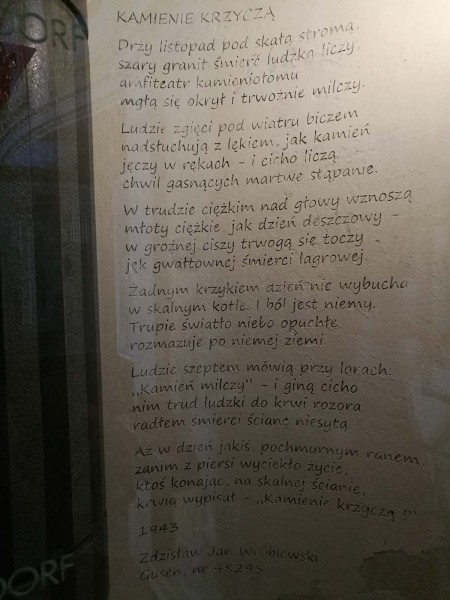 DORF
KAMIENIE KRZYCZĄ
Drży listopad pod skałą stromą,
szary granit śmierć ludzką liczy,
amfiteatr kamieniołomu
mgłą się okrył i trwożnie milczy.
Ludzie zgięci pod wiatru biczem
nadsłuchują z lękiem, jak kamień
jęczy w rękach - i cicho liczą
chwil gasnących martwe stąpanie.
W trudzie ciężkim nad głowy wznoszą
młoty ciężkie, jak dzień deszczowy -
w groźnej ciszy trwogą się toczy
jęk gwałtownej śmierci lagrowej.
Żadnym krzykiem dzień nie wybucha
w skalnym kotle. I ból jest niemy.
Trupie światło niebo opuchłe
rozmazuje po niemej ziemi.
Ludzie szeptem mówią przy lorach:
„Kamień milczy" - i giną cicho
nim trud ludzki do krwi rozora
radłem śmierci ścianę niesytą.
Aż w dzień jakiś, pochmurnym ranem,
zanim z piersi wyciekło życie,
ktoś konając, na skalnej ścianie,
krwią wypisał - „Kamienie krzyczą!"
1943
Zdzisław Jan Wróblewski
Gusen, nr 48295
DORF